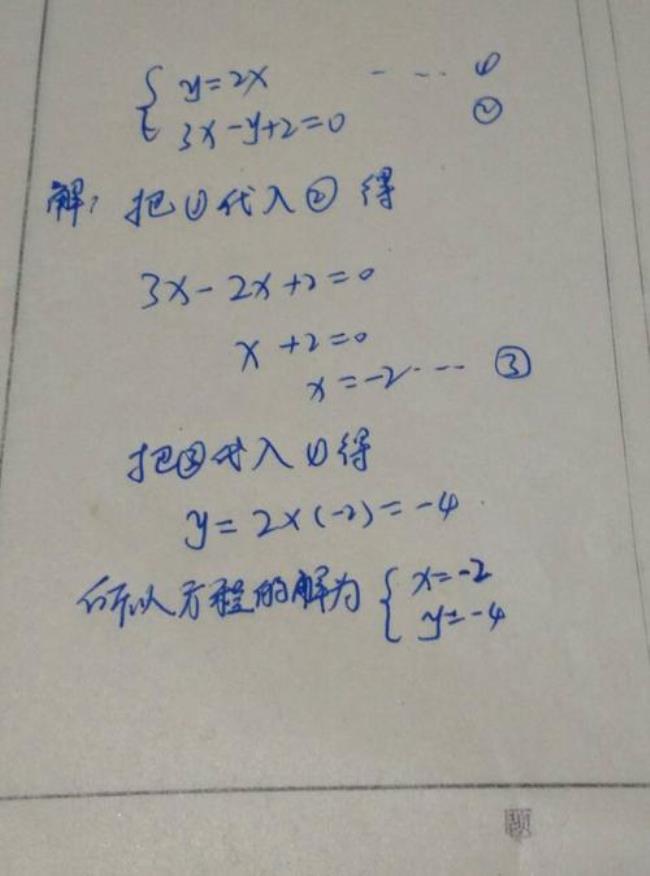 { y=2x -- --- ①
3x-y+2=0 ②
解: 把①代入②得
3x-2x+2=0
x+2=0
x=-2--- ③
把③代入①得
y=2×(-2)=-4
所以方程的解为 { x=-2
y=-4